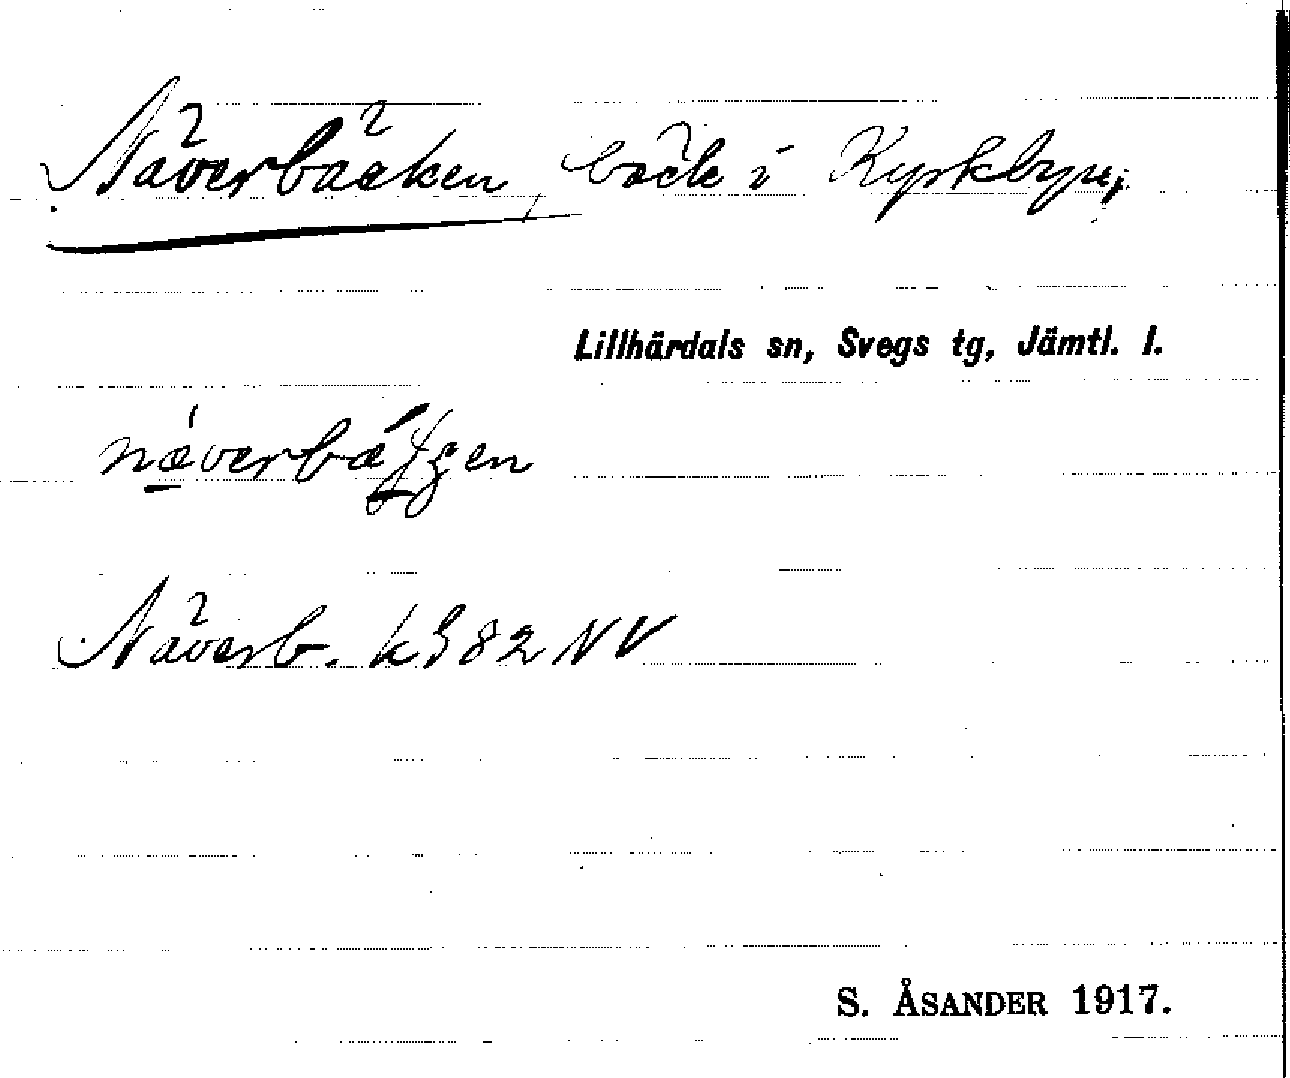 Näverbäcken, bäck i Kyrkbyn,
Lillhärdals sn, Svegs tg, Jämtl. l.
Näverb. k 382 NV
S. ÅSANDER 1917.